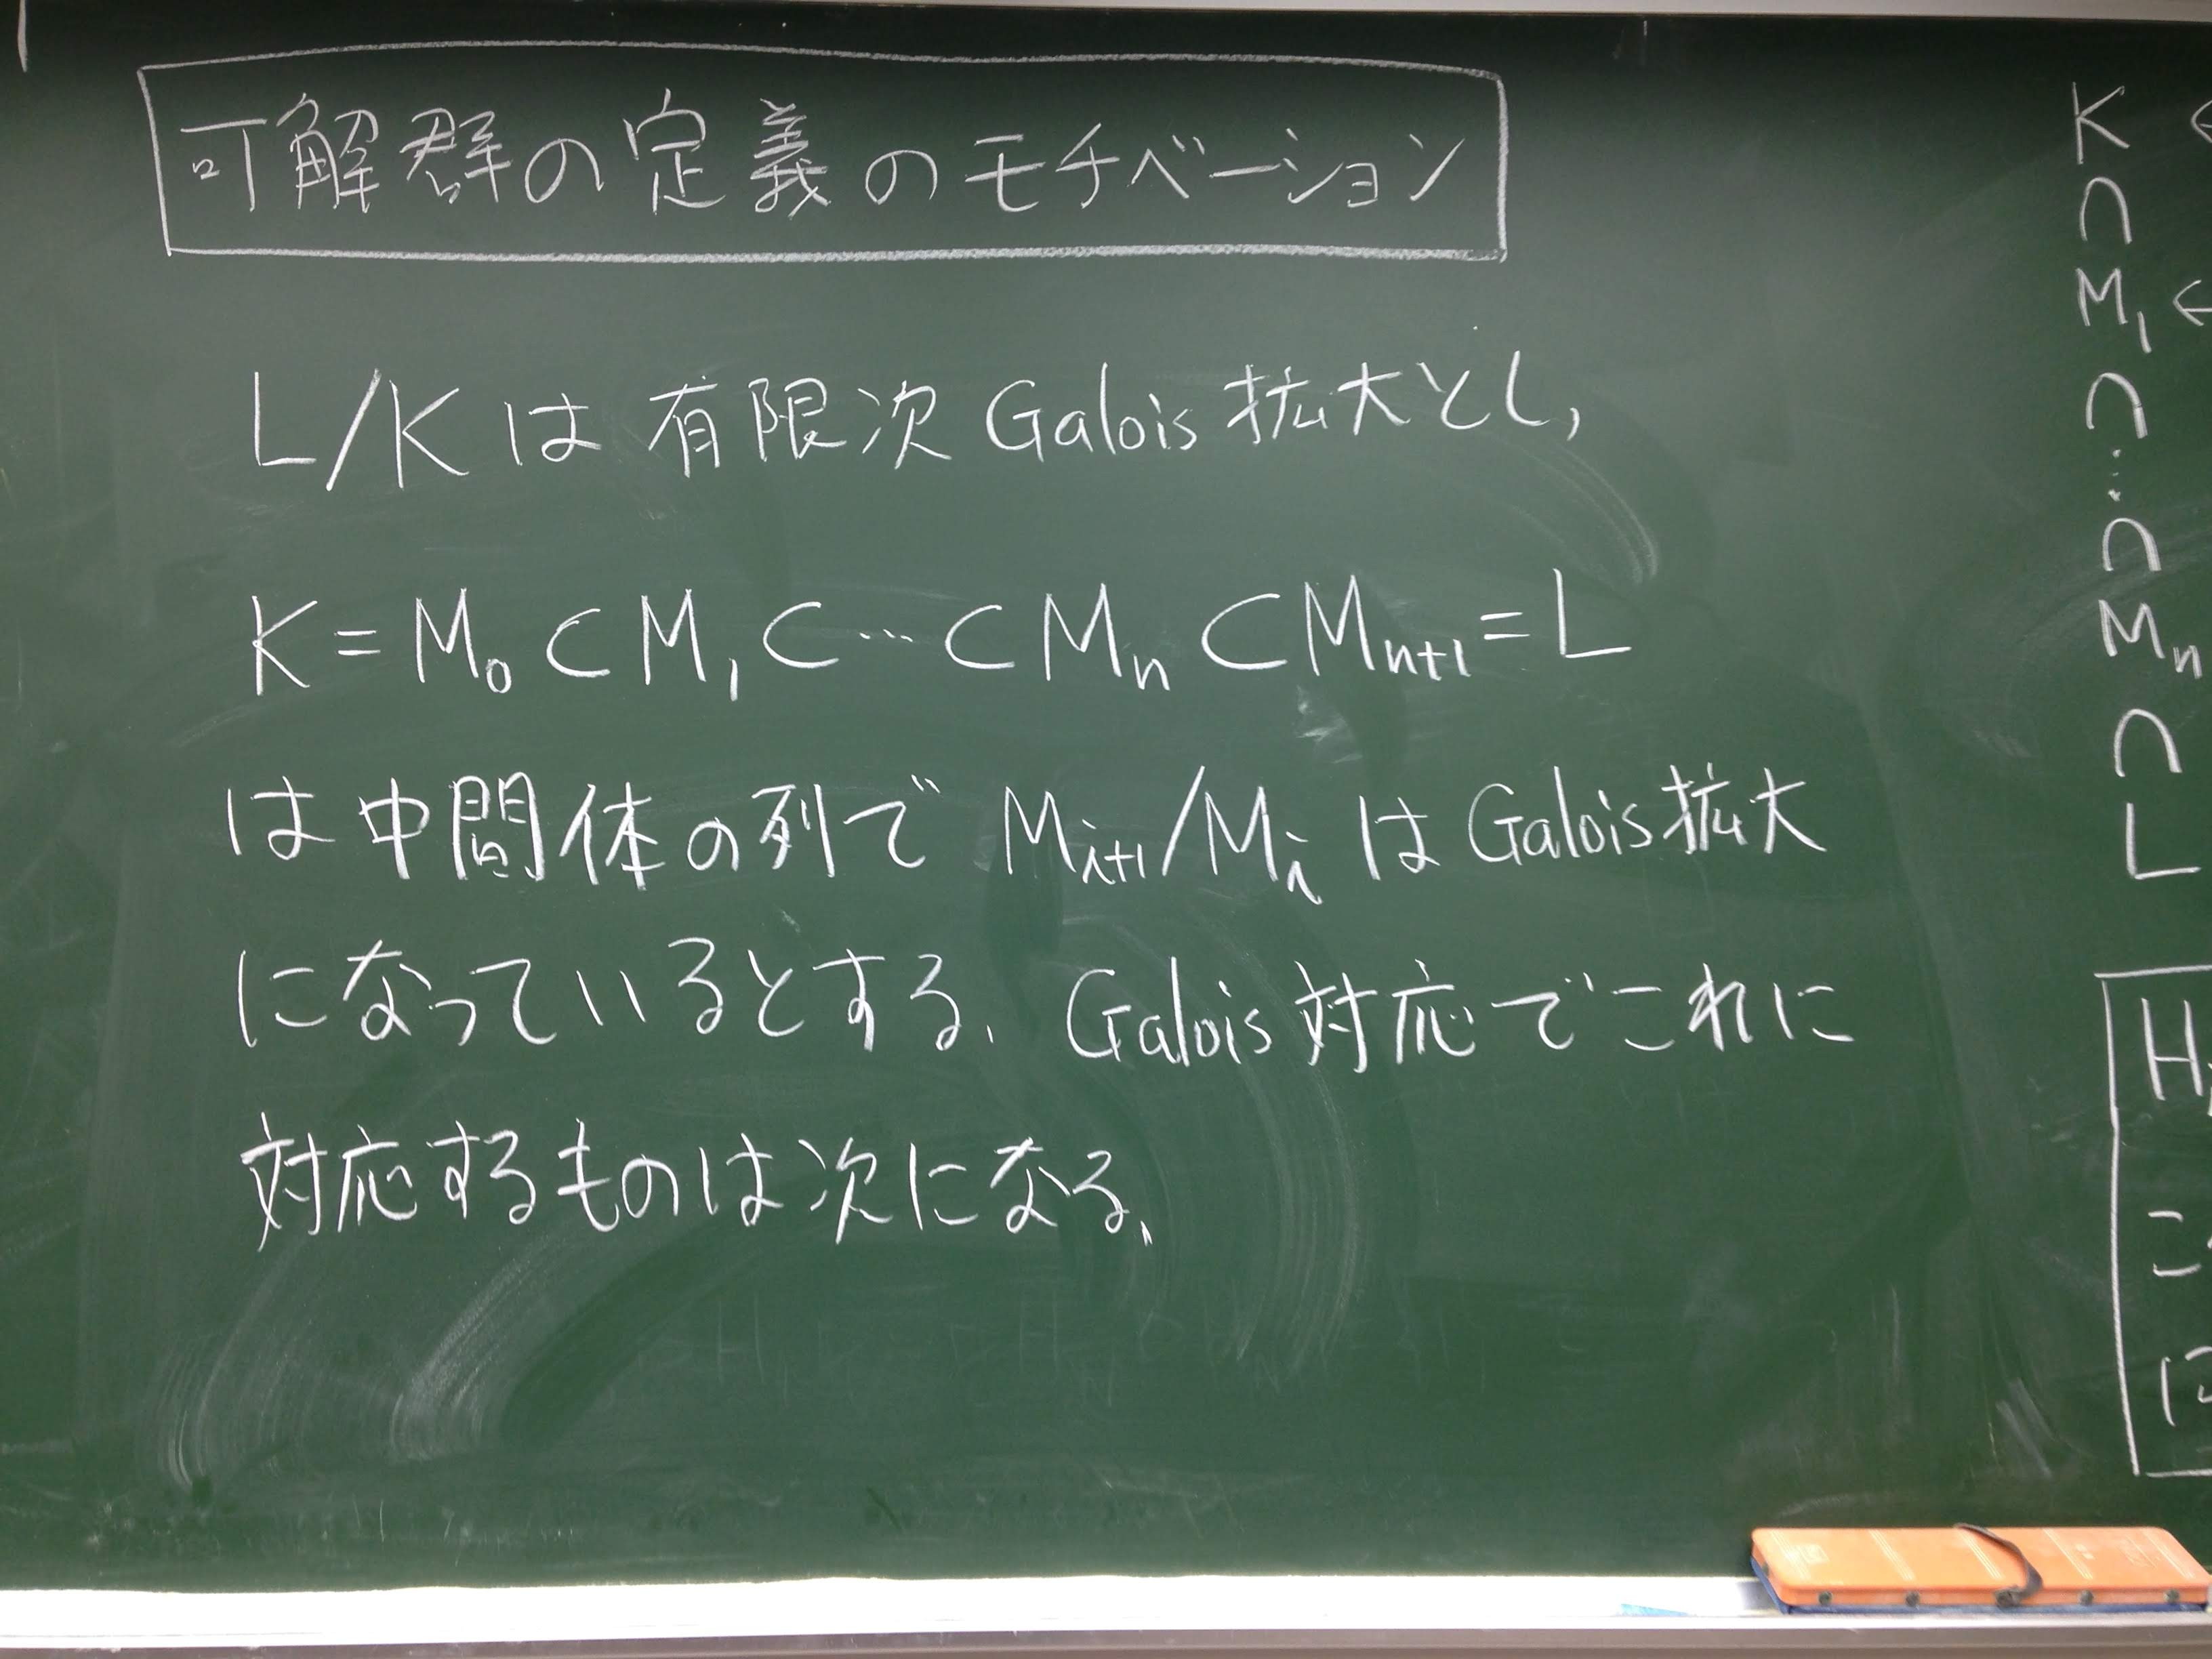 可解群の定義のモチベーション
L/Kは有限次Galois拡大とし,
K = M₀ ⊂ M₁ ⊂ … ⊂ Mₙ ⊂ Mₙ₊₁ = L
は中間体の列で Mᵢ₊₁/Mᵢ はGalois拡大
になっているとする. Galois対応でこれに
対応するものは次になる.
K ←
∩
M₁ ←
∩
⋮
∩
Mₙ
∩
L
H